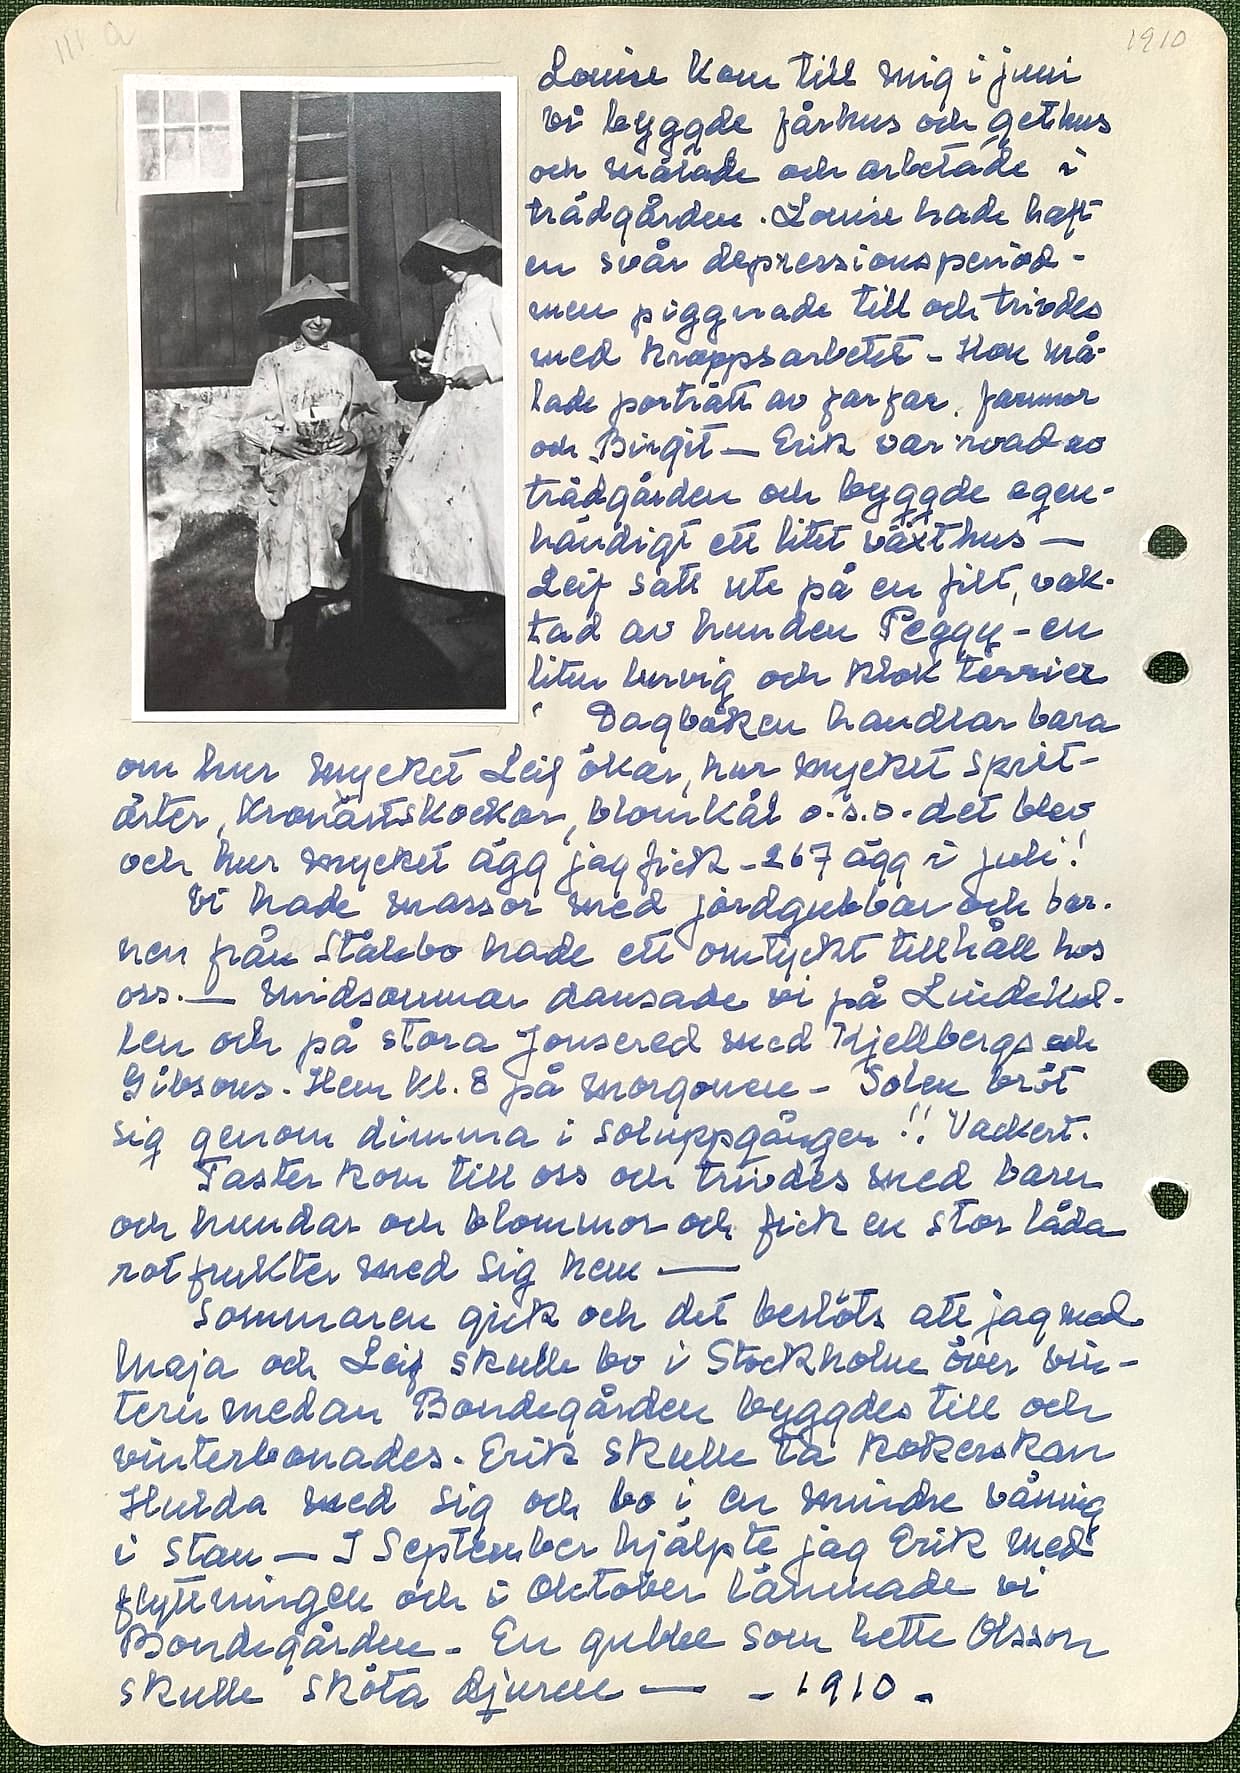 III a
1910
Louise kom till mig i juni
vi byggde fårhus och gethus
och målade och arbetade i
trädgården. Louise hade haft
en svår depressionsperiod -
men piggnade till och trivdes
med kroppsarbetet - Hon må-
lade porträtt av farfar, farmor
och Birgit — Erik var road av
trädgården och byggde egen-
händigt ett litet växthus —
Leif satt ute på en filt, vak-
tad av hunden Peggy - en
liten lurvig och klok terrier
Dagboken handlar bara
om hur mycket Leif ökar, hur mycket sprit-
ärter, kronärtskockor, blomkål o.s.v. det blev
och hur mycket ägg jag fick - 267 ägg i juli!
Vi hade massor med jordgubbar och bar-
nen från Stålebo hade ett omtyckt tillhåll hos
oss. — Midsommar dansade vi på Lindekul-
len och på stora Jonsered med Kjellbergs och
Gibsons. Hem kl. 8 på morgonen - Solen bröt
sig genom dimma i soluppgången!! Vackert.
Faster kom till oss och trivdes med barn
och hundar och blommor och fick en stor låda
rotfrukter med sig hem —
Sommaren gick och det beslöts att jag med
Maja och Leif skulle bo i Stockholm över vin-
tern medan Bondegården byggdes till och
vinterbonades. Erik skulle ta kokerskan
Hulda med sig och bo i en mindre våning
i stan — I September hjälpte jag Erik med
flyttningen och i Oktober lämnade vi
Bondegården - En gubbe som hette Olsson
skulle sköta djuren — - 1910 -